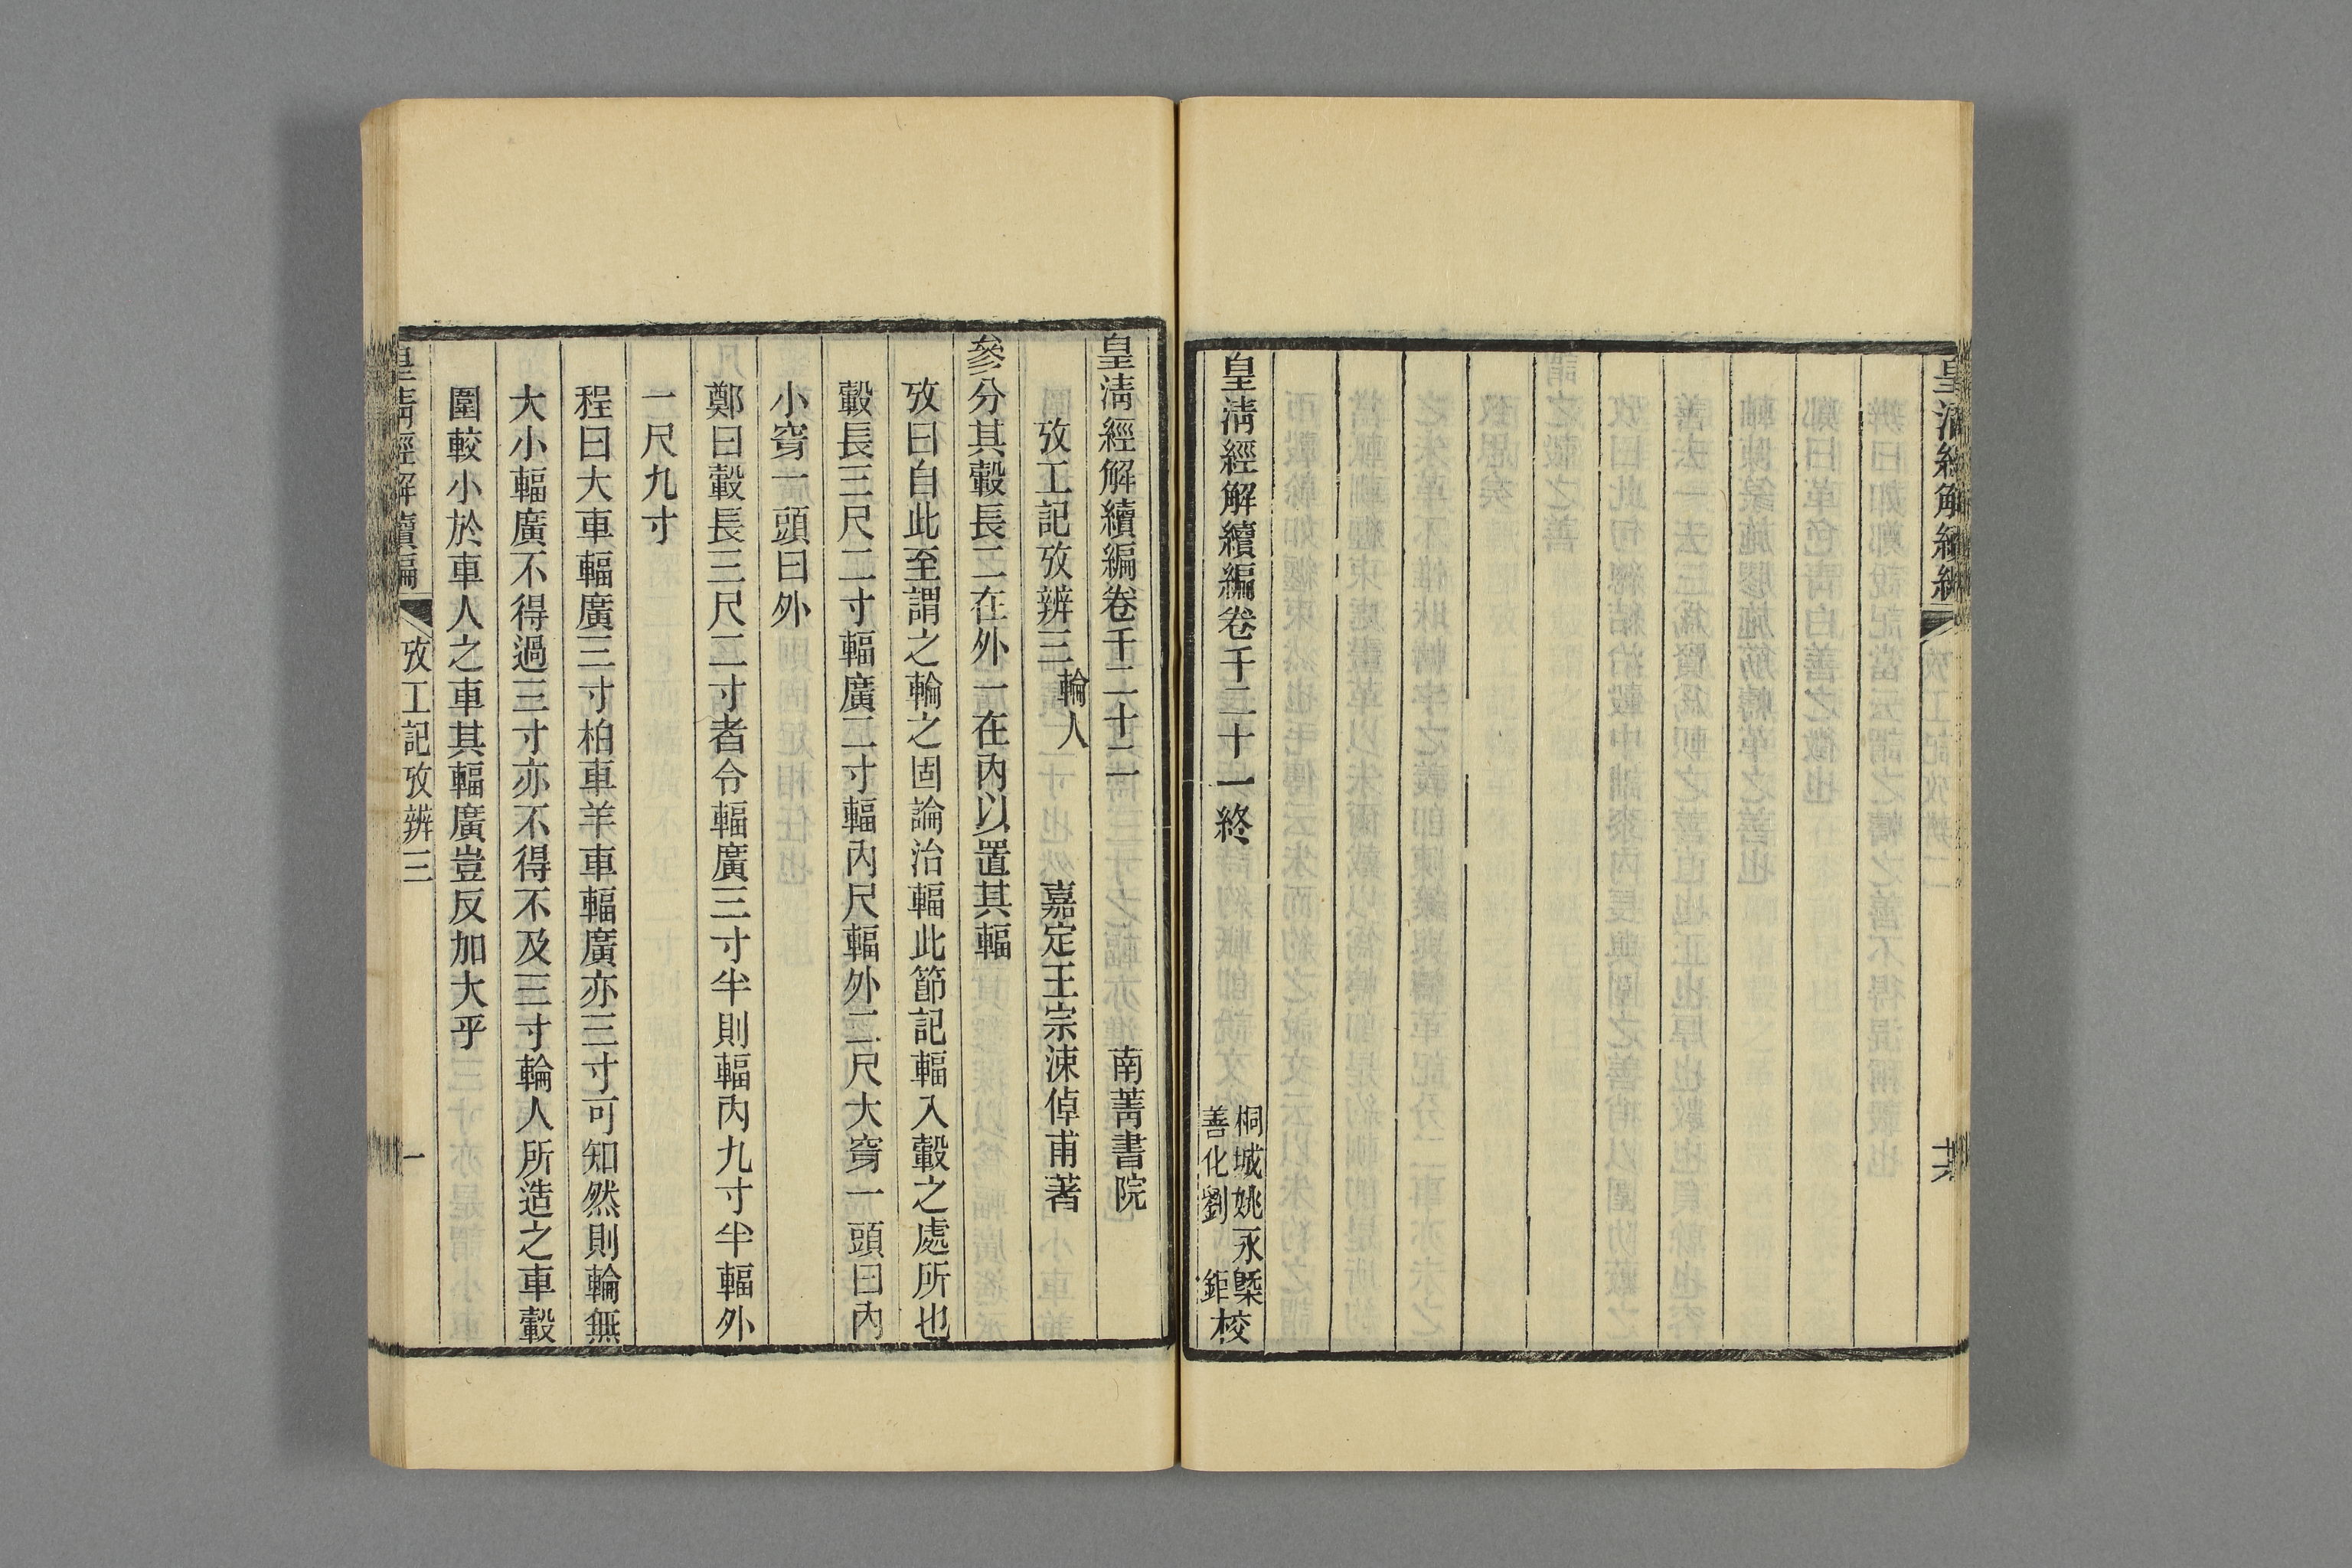 皇清經解續編
十六
皇清經解續編卷千二十一終
桐城姚永㮣
善化劉鉅
校
皇清經解續編卷千二十二 南菁書院
攷工記攷辨三 輪人 嘉定王宗涑倬甫著
參分其轂長二在外一在內以置其輻
攷曰自此至謂之輪之固論治輻此節記輻入轂之處所也
轂長三尺二寸輻廣二寸輻內尺輻外二尺大穿一頭曰內
小穿一頭曰外
鄭曰轂長三尺二寸者令輻廣三寸半則輻內九寸半輻外
一尺九寸
程曰大車輻廣三寸柏車羊車輻廣亦三寸可知然則輪無
大小輻廣不得過三寸亦不得不及三寸輪人所造之車轂
圍較小於車人之車其輻廣豈反加大乎
皇清經解續編 攷工記攷辨三 一